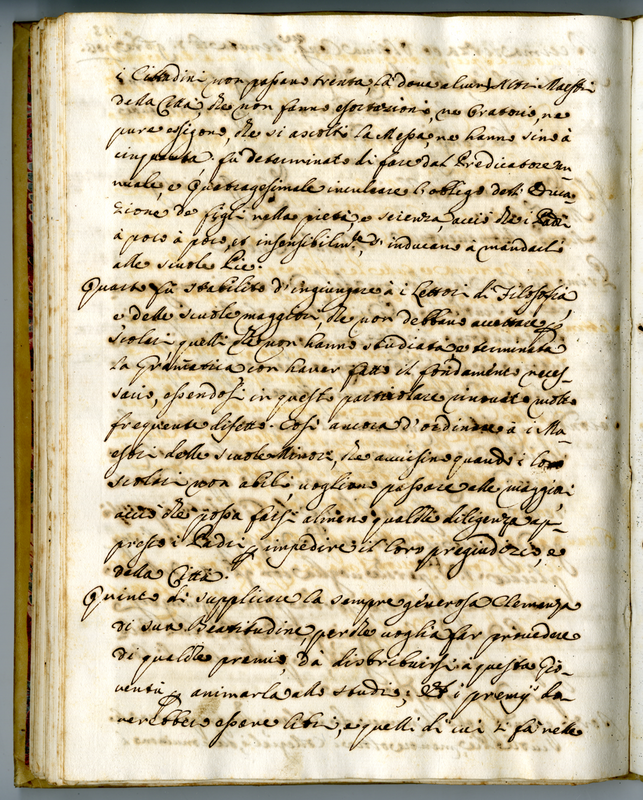 i Cittadini non passano trenta, là dove alcuni Altri Maestri
della Città, che non fanno esortazioni, ne Oratorio, ne
pure essigono, che si ascolti la Messa, ne hanno sino à
cinquanta. fù determinato di fare dal Predicatore An-
nuale, e Quatragesimale inculcare l'obligo dell'Educa
zione de figli nella pietà e scienza, acciò che i Padri
à poco à poco, et insensibilmte s'inducano à mandarli
alle scuole Pie.
Quarto fù stabilito d'ingiungere à i Lettori di Filosofia
e delle scuole maggiori, che non debbano accettare p
scolari quelli che non hanno studiata e terminata
la Gramatica con haver fatto il fondamento neces-
sario, essendosi in questo particolare trovato molto
frequente difetto. Così ancora d'ordinare à i Ma-
estri delle scuole Minori, che avvisino quando i loro
scolari non abili, vogliono passare alle maggiori
acciò che possa farsi almeno qualche diligenza ap-
presso i Padri p impedire il loro pregiudizio, e
della Città.
Quinto di supplicare la sempre generosa Clemenza
di sua Beatitudine, perche voglia far provedere
di qualche premio, da distribuirsi à questa Gio-
ventù p animarla allo studio; et i premij do-
verebbero essere libri, e quelli di cui si fà nelle